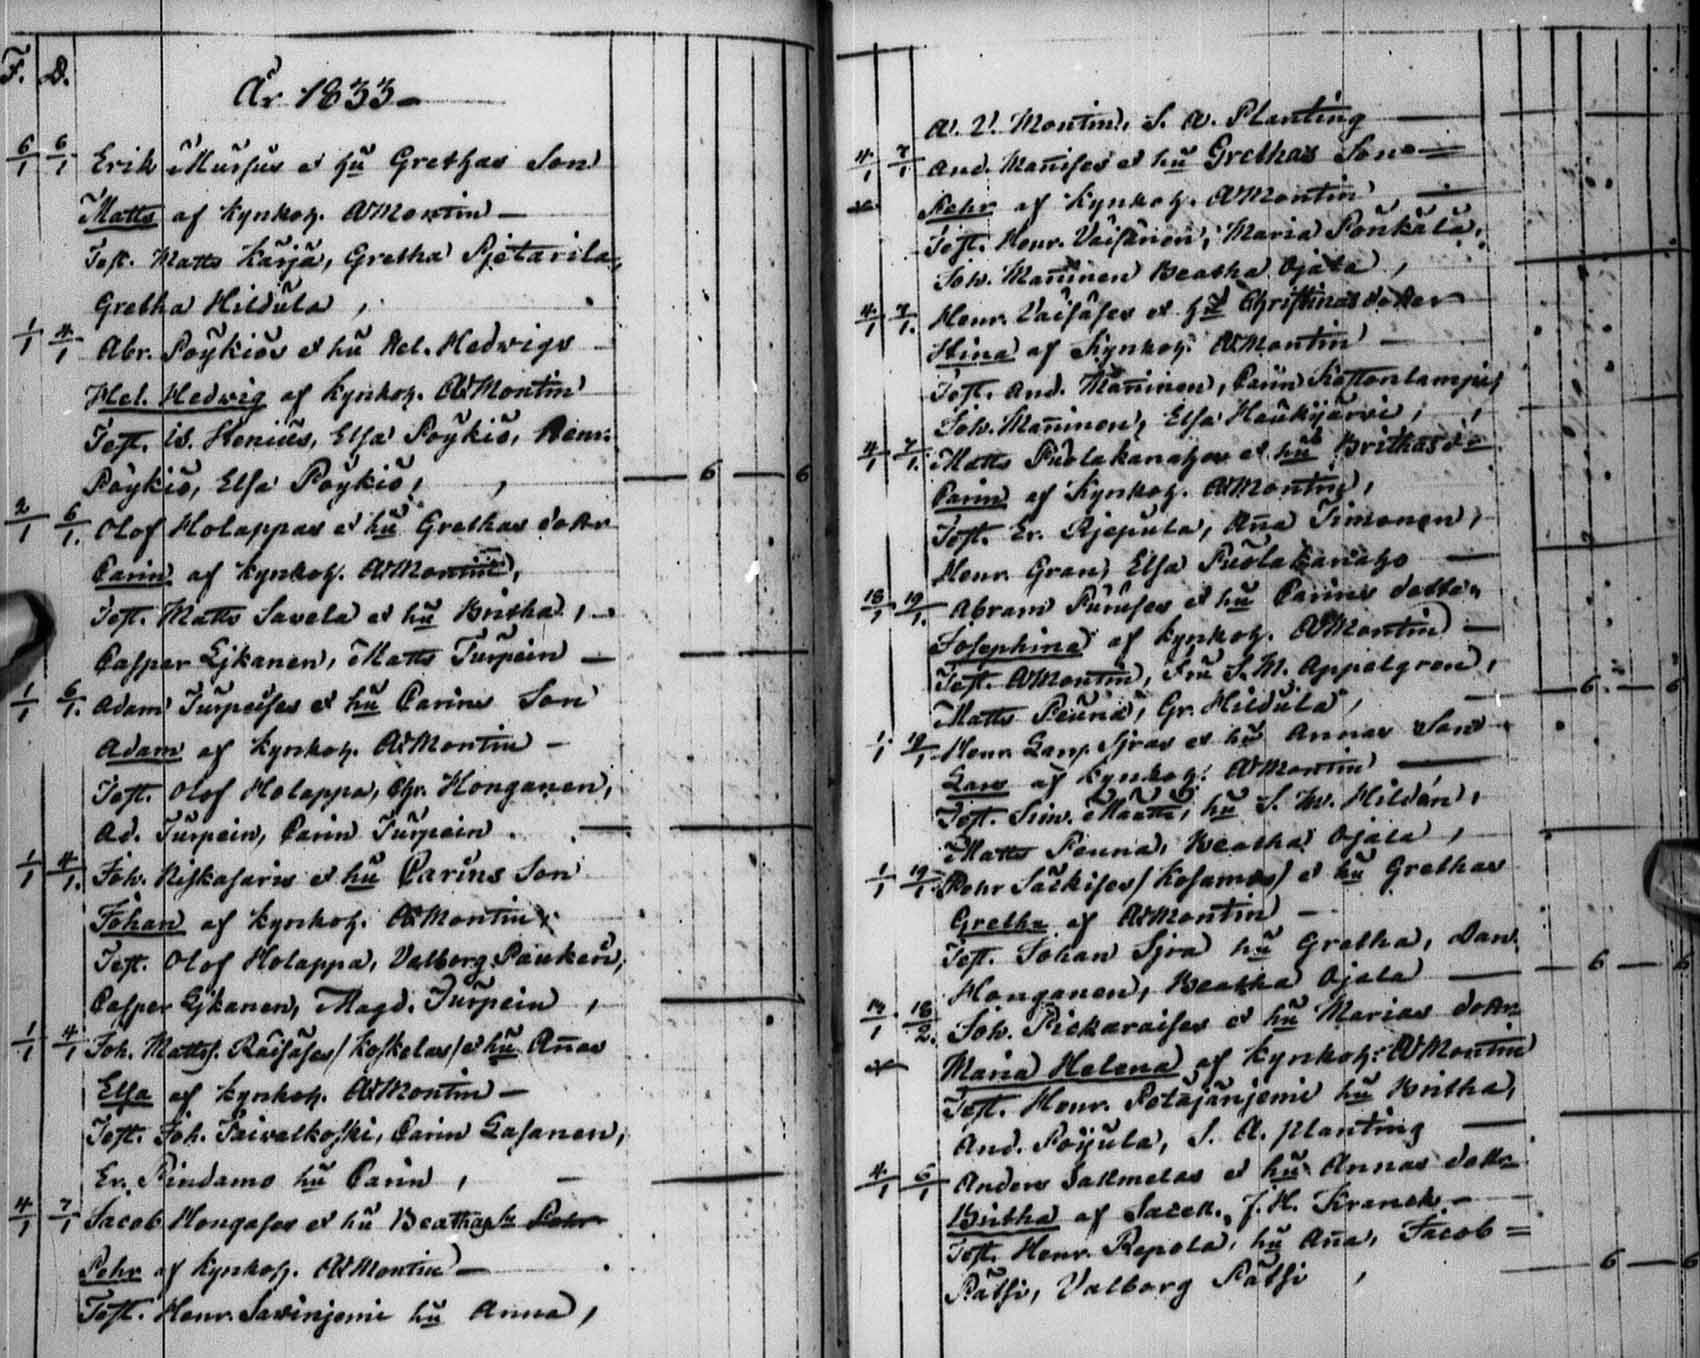 F. D.
År 1833
6/1 6/1 Erik Mursus et hu Grethas Son
Matts af Kynkoh. AVMontin
Test. Matts Kärjä, Gretha Pjetarila,
Gretha Hildula,
1/1 4/1 Abr. Pöykiös et hu Hel. Hedvigs
Hel. Hedvig af Kynkoh. AVMontin
Test. Is. Stenius, Elsa Pöykiö, Henr.
Pöykiö, Elsa Pöykiö, 6 6
2/1 6/1. Olof Holappas et hu Grethas dottr
Carin af Kynkoh. AVMontin,
Test. Matts Savela et hu Britha,
Casper Lykanen, Matts Turpein
1/1 6/1. Adam Turpeises et hu Carins Son
Adam af Kynkoh. AVMontin
Test. Olof Holappa, Chr. Honganen,
Ad. Turpein, Carin Turpein.
1/1 4/1. Joh. Niskasaris et hu Carins Son
Johan af Kynkoh. AVMontin,
Test. Olof Holappa, Valborg Pauken,
Casper Lykanen, Magd. Turpein,
1/1 4/1 Joh. Mattss. Räisäses/Koskelas/et hu Annas
Elsa af Kynkoh. AVMontin
Test. Joh. Taivalkoski, Carin Lasanen,
Er. Pindamo hu Carin,
4/1 7/1 Jacob Hongases et hu Beathas Pehr
Pehr af Kynkoh. AVMontin
Test. Henr. Savinjemi hu Anna,
A. V. Montin, S. A. Planting
4/1 7/1 And. Manises et hu Grethas Son
Pehr af Kynkoh. AVMontin
Test. Henr. Väisänen, Maria Pönkälä,
Joh. Maninen Beatha Ojala,
4/1 7/1. Henr. Väisäses et hu Christinas dotter
Stina af Kynkoh. AVMontin
Test. And. Maninen, Carin Kostonlampi,
Joh. Maninen, Elsa Haukijärvi,
4/1 7/1. Matts Puolakanahos et hu Brithas d=
Carin af Kynkoh. AVMontin,
Test. Er. Rjepula, Ana Timonen,
Henr. Gran, Elsa Puolakanaho
18/1 19/1. Abram Puruses et hu Carins dotter
Josephina af Kynkoh. AVMontin
Test. AVMontin, Fru S. M. Appelgren,
Matts Peuna, Gr. Hildula, 6 6
1/1 19/1 Henr. Larss. Sjras et hu Annas Son
Lars af Kynkoh. AVMontin
Test. Sim. Määttä, hu S. W. Hildén,
Matts Peuna, Beatha Ojala,
1/1 19/1. Pehr Särkises/Kosamos/ et hu Grethas
Gretha af AVMontin
Test. Johan Sjra hu Gretha, Dan.
Honganen, Beatha Ojala 6 6
14/1 18/2. Joh. Pickaraises et hu Marias dottr
Maria Helena af Kynkoh. AVMontin
Test. Henr. Petäjänjemi hu Britha,
And. Pöyjula, S. A. Planting
4/1 6/1 Anders Salmelas et hu Annas dottr
Britha af Sacell. J. H. Kranck
Test. Henr. Repola, hu Ana, Jacob=
Pätsi, Valborg Pätsi, 6 6